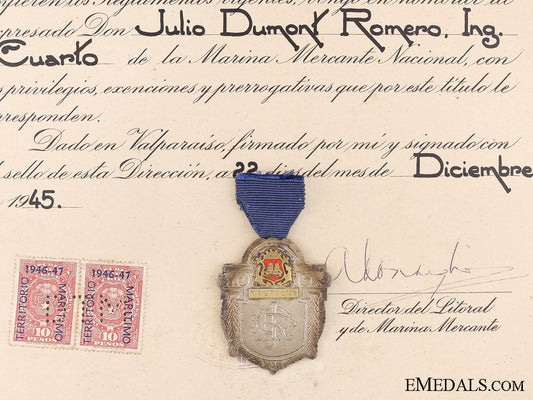 presado Don Julio Dumont Romero, Ing.
Cuarto de la Marina Mercante Nacional, con
privilegios, exenciones y prerrogativas que por este título le
rresponden.
Dado en Valparaíso, firmado por mí y signado con
sello de esta Dirección, a 22 días del mes de Diciembre
1945.
1946-47
TERRITORIO
MARITIMO
10
PESOS
1946-47
TERRITORIO
MARITIMO
10
PESOS
Director del Litoral
y de Marina Mercante
EMEDALS.COM